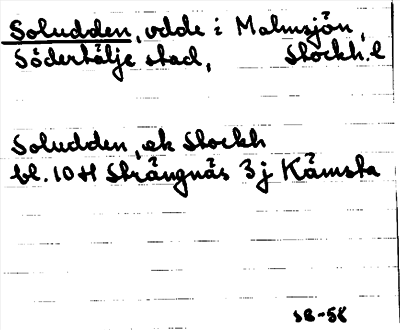 Soludden, udde i Malmsjön,
Södertälje stad, Stockh.l
Soludden, ek Stockh
bl. 10H Strängnäs 3j Kämsta
SB-58